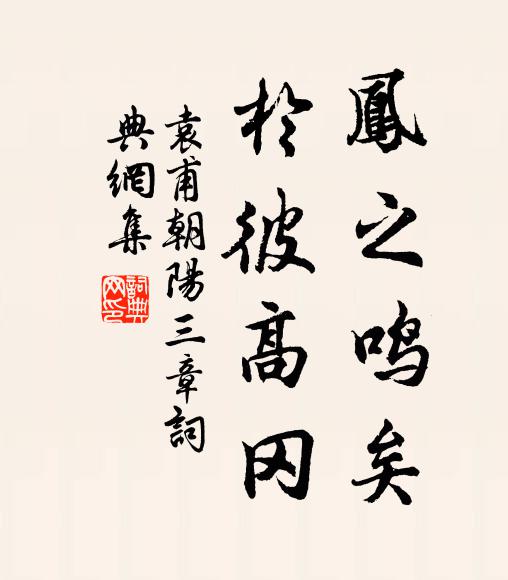 鳳之鸣矣
於彼高冈
袁甫朝陽三章詞
典網集
詞典
网印